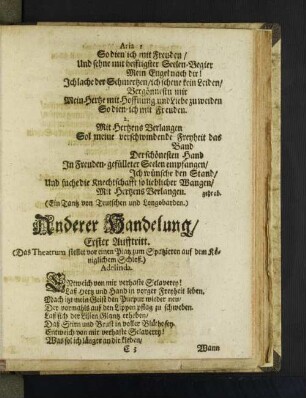 Aria 1
So dien ich mit Freuden /
Und sehne mit heifftigster Seelen-Begier
Mein Engel nach dir!
Ich lache der Schmertzen / ich scheue kein Leiden /
Vergönnestu mir
Mein Hertze mit Hoffnung und Liebe zu weiden
So dien ich mit Freuden.
2.
Mit Hertzens Verlangen
Sol meine verschwindende Freyheit das
Band
Der schönesten Hand
In Freuden-gefülleter Seelen empfangen /
Ich wünsche den Stand /
Und suche die Knechtschafft so lieblicher Wangen /
Mit Hertzens Verlangen. geht ab.
(Ein Tantz von Teutschen und Longobarden.)
Anderer Handelung /
Erster Aufftritt.
(Das Theatrum stellet vor einen Platz zum Spatzieren auf dem Kö-
niglichem Schloß.)
Adelinda.
Entweich von mir verhaste Sclaverey!
Laß Hertz und Hand in voriger Freyheit leben,
Mach itzt mein Geist den Purpur wieder neu /
Der vormahls auf den Lippen pflog zu schweben.
Laß sich der Lilien Glantz erheben /
Daß Stirn und Brust in voller Blüthe sey.
Entweich von mir verhaste Sclaverey!
Was sol ich länger an die kleben /
E 3 Wann